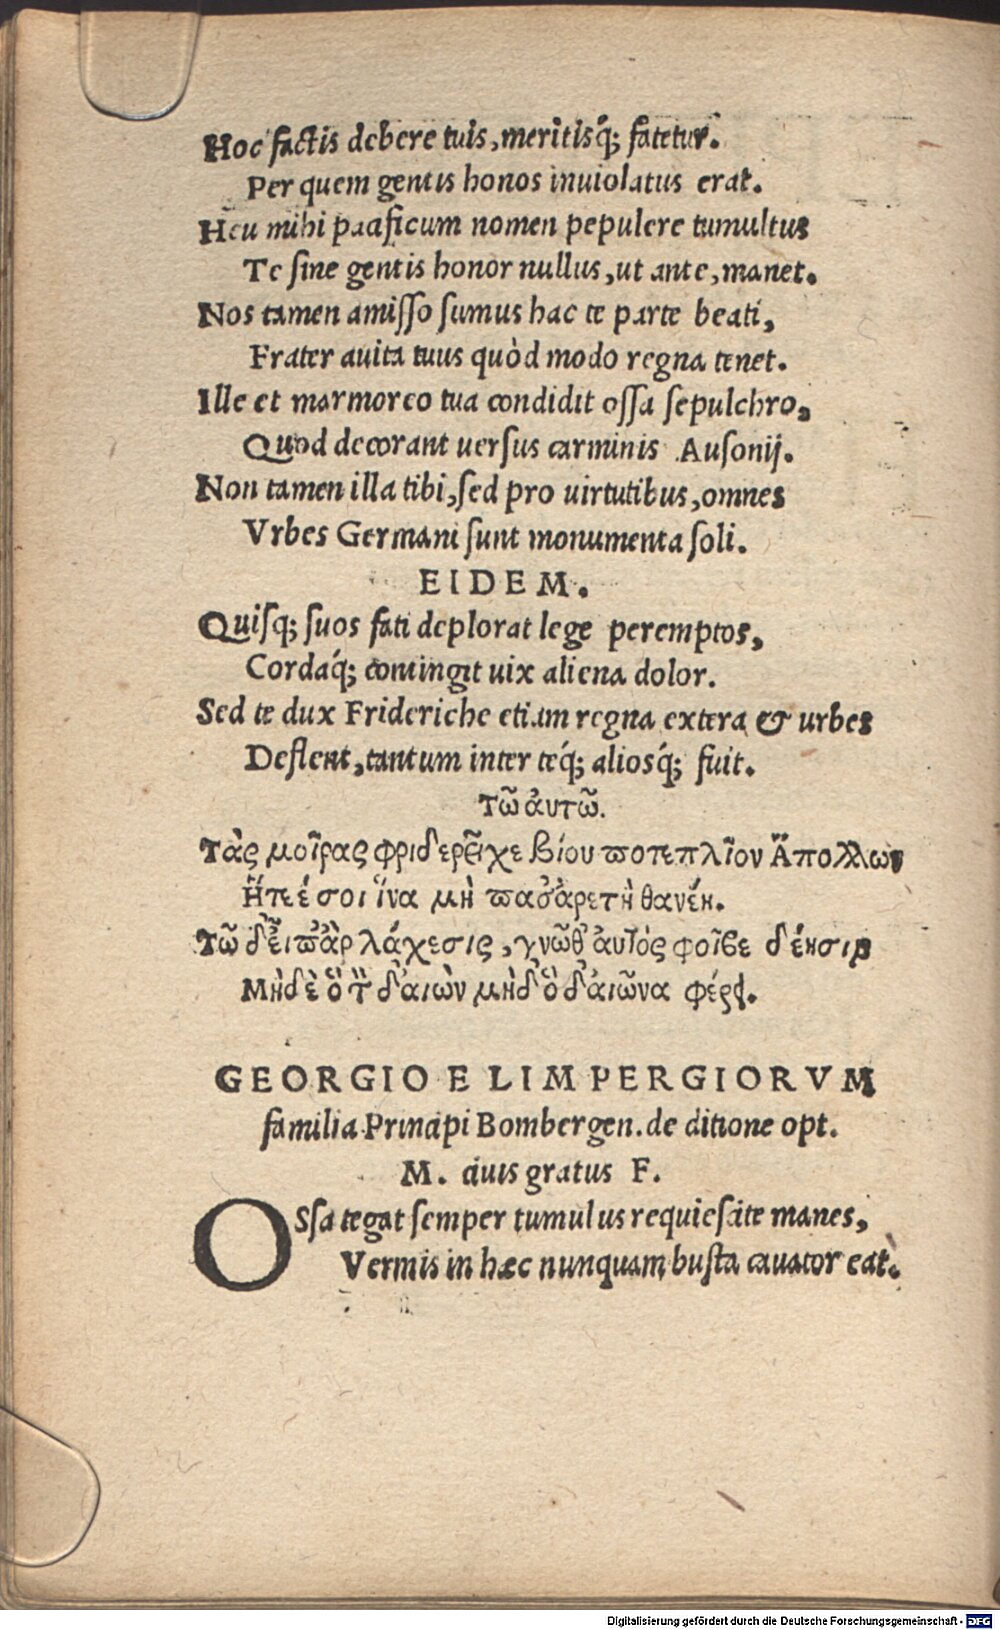 Hoc factis debere tuis, meritisq́; fatetur.
Per quem gentis honos inuiolatus erat.
Heu mihi pacificum nomen pepulere tumultus
Te sine gentis honor nullus, ut ante, manet.
Nos tamen amisso sumus hac te parte beati,
Frater auita tuus quòd modo regna tenet.
Ille et marmoreo tua condidit ossa sepulchro,
Quod decorant uersus carminis Ausonij.
Non tamen illa tibi, sed pro uirtutibus, omnes
Vrbes Germani sunt monumenta soli.
EIDEM.
Quisq; suos fati deplorat lege peremptos,
Cordaq́; contingit uix aliena dolor.
Sed te dux Frideriche etiam regna extera & urbes
Deflent, tantum inter teq́; aliosq́; fuit.
Τῶ αὐτῶ.
Τὰς μοῖρας φριδερῖχε βίου ποτε πλῖον Ἄπολλων
Ἤτεέ σοι ἵνα μὴ πᾶσ᾽ ἀρετὴ θανέῃ.
Τῶ δ᾽ εἶπ᾽ ἂρ λάχεσις, γνῶθ᾽ αὐτὸς φοῖβε
Μηδὲ ὃ δ᾽ αἰὼν μηδ᾽ ὃ δ᾽ αἰῶνα φέρῃ.
GEORGIO E LIMPERGIORVM
familia Principi Bombergen. de ditione opt.
M. ciuis gratus F.
OSsa tegat semper tumulus requiescite manes,
Vermis in hæc nunquam busta cauator eat.
Digitalisierung gefördert durch die Deutsche Forschungsgemeinschaft - DFG